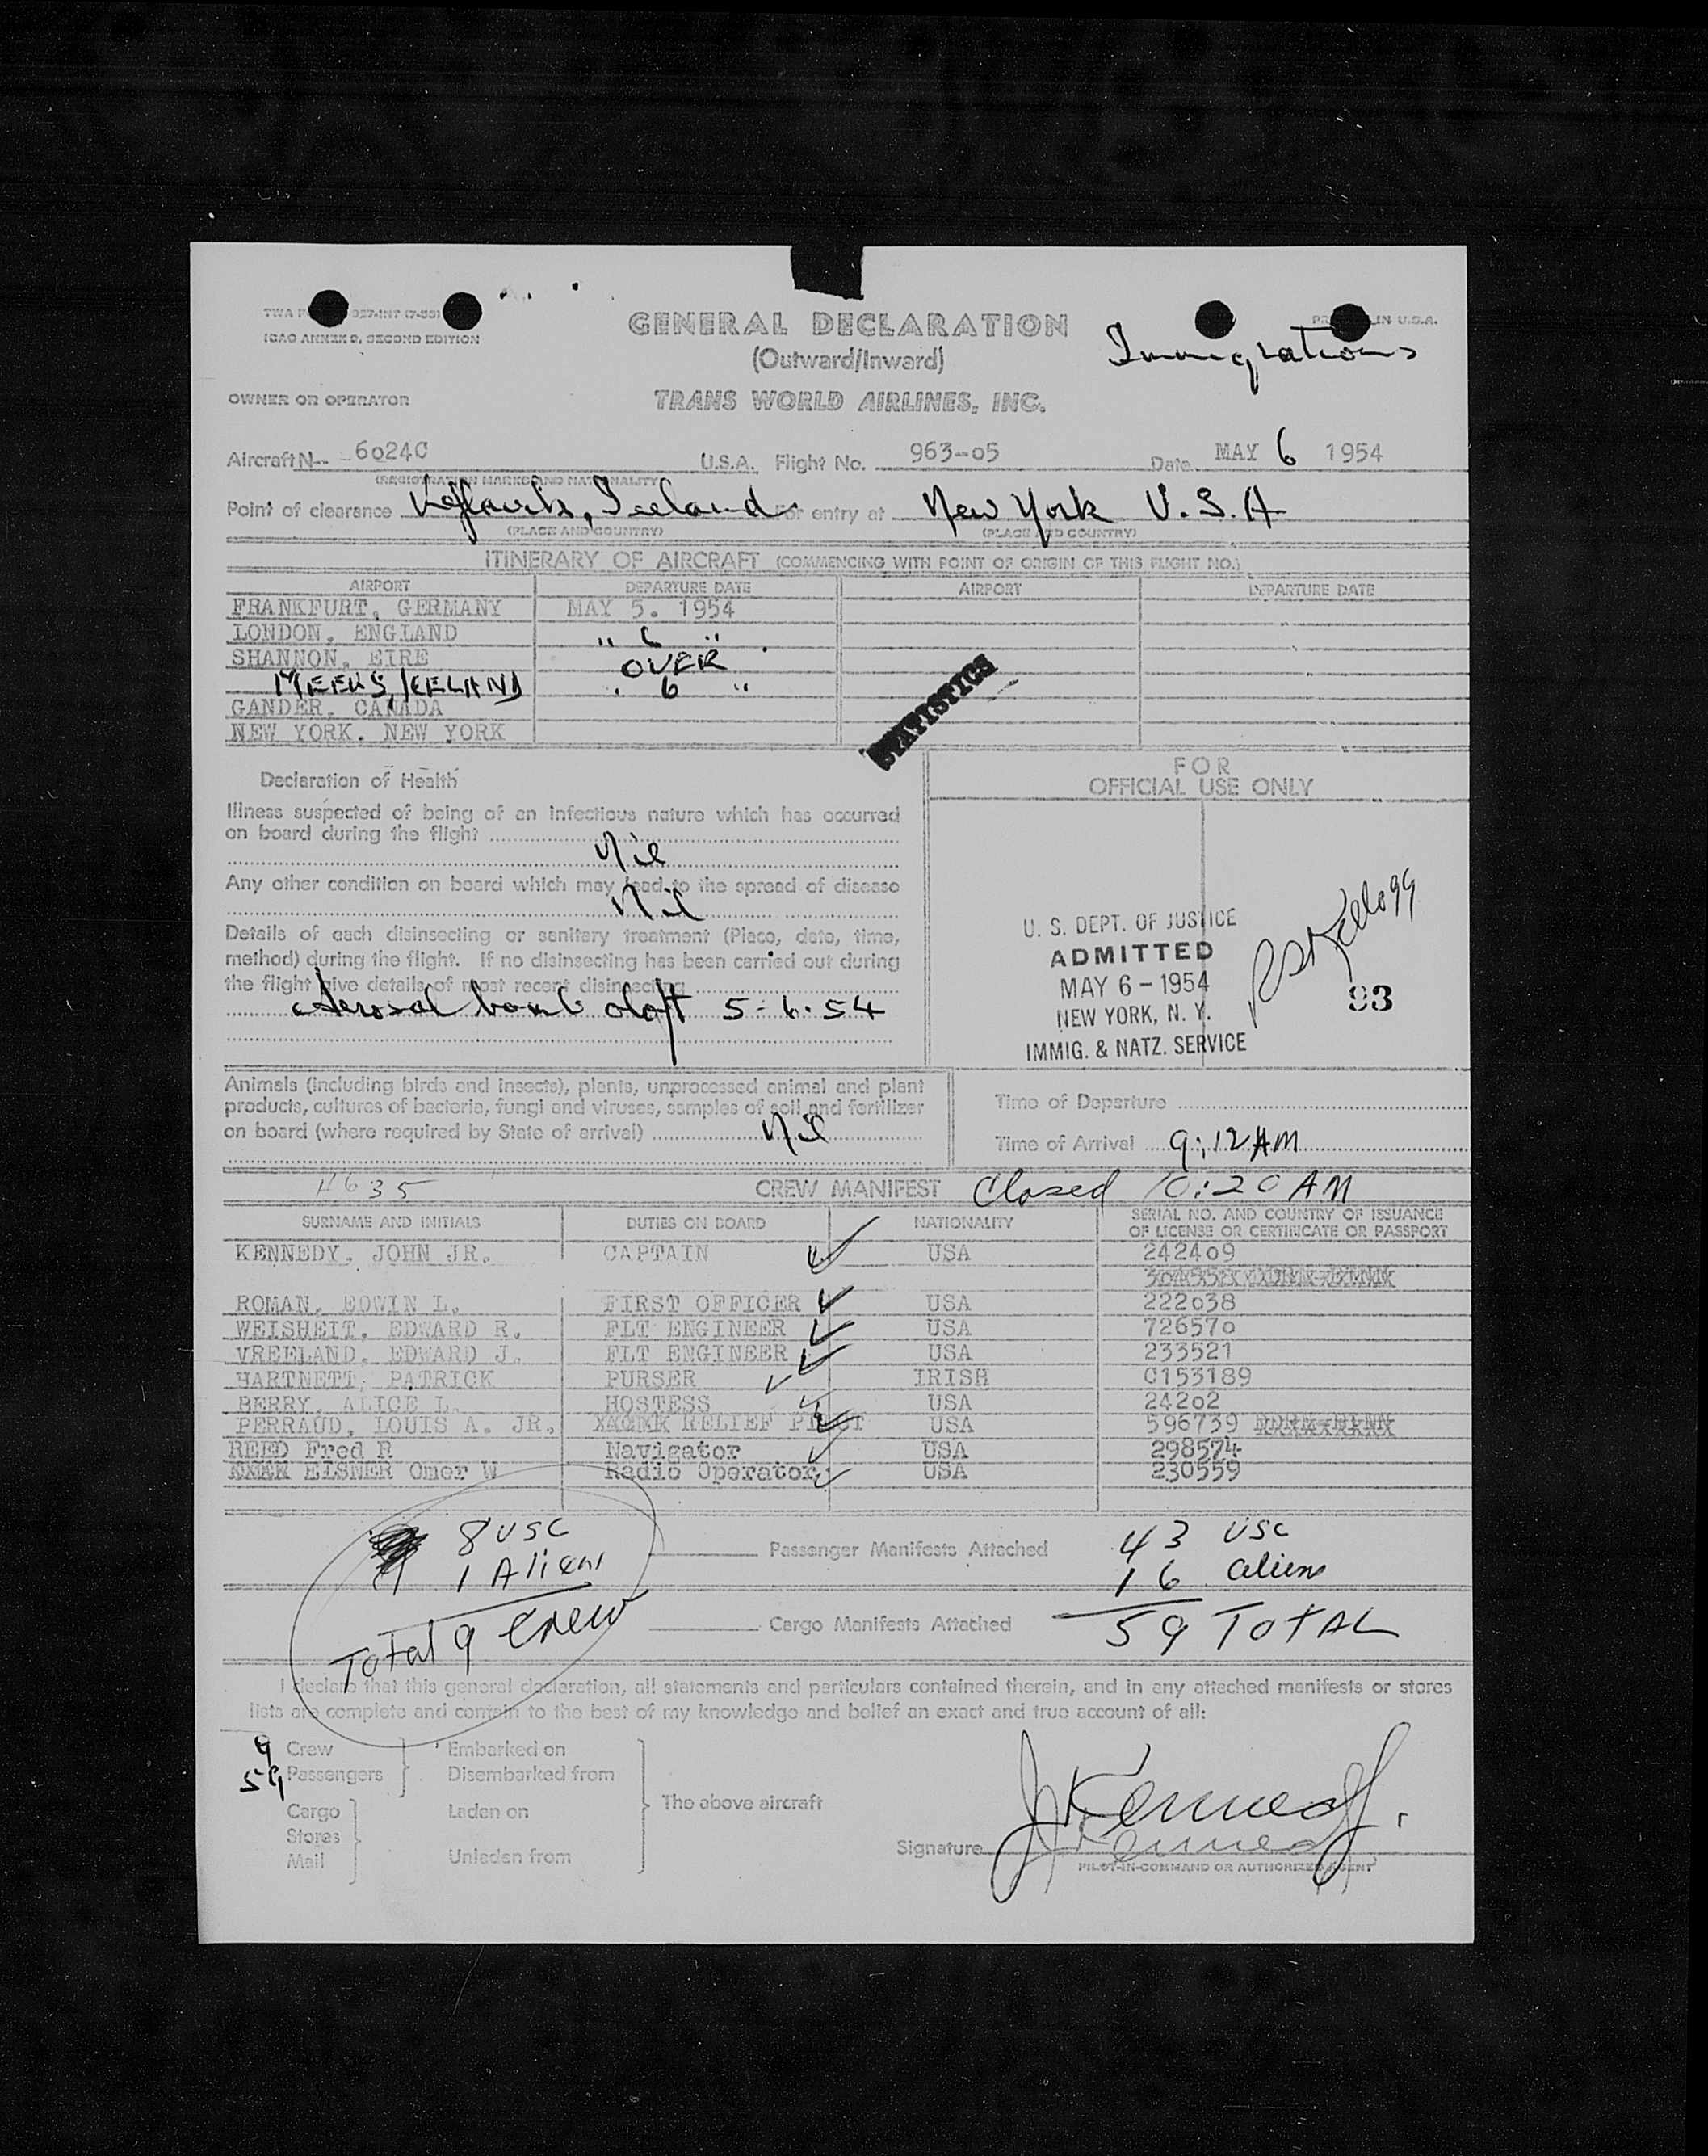 ICAO ANNEX 9, SECOND EDITION
GENERAL DECLARATION
(Outward/Inward)
IN U.S.A.
Immigrations
OWNER OR OPERATOR
TRANS WORLD AIRLINES, INC.
Aircraft N-- 6024C U.S.A. Flight No. 963-05 Date MAY 6 1954
(REGISTRATION MARKS AND NATIONALITY)
Point of clearance Keflavik, Iceland For entry at New York U.S.A
(PLACE AND COUNTRY) (PLACE AND COUNTRY)
ITINERARY OF AIRCRAFT (COMMENCING WITH POINT OF ORIGIN OF THIS FLIGHT NO.)
AIRPORT DEPARTURE DATE AIRPORT DEPARTURE DATE
FRANKFURT, GERMANY MAY 5. 1954
LONDON, ENGLAND " 6 "
SHANNON, EIRE OVER
MEEKS, ICELAND 6 "
GANDER, CANADA
NEW YORK. NEW YORK
STATISTICS
Declaration of Health
Illness suspected of being of an infectious nature which has occurred
on board during the flight
Nil
Any other condition on board which may lead to the spread of disease
Nil
Details of each disinsecting or sanitary treatment (Place, date, time,
method) during the flight. If no disinsecting has been carried out during
the flight give details of most recent disinsecting
Aerosol bomb aloft 5-6-54
FOR
OFFICIAL USE ONLY
U. S. DEPT. OF JUSTICE
ADMITTED
MAY 6 - 1954
NEW YORK, N. Y.
IMMIG. & NATZ. SERVICE
Kellogg
93
Animals (including birds and insects), plants, unprocessed animal and plant
products, cultures of bacteria, fungi and viruses, samples of soil and fertilizer
on board (where required by State of arrival) Nil
Time of Departure
Time of Arrival 9:12 AM
4635 CREW MANIFEST Closed 10:20 AM
SURNAME AND INITIALS DUTIES ON BOARD NATIONALITY SERIAL NO. AND COUNTRY OF ISSUANCE
OF LICENSE OR CERTIFICATE OR PASSPORT
KENNEDY, JOHN JR. CAPTAIN USA 242409
ROMAN, EDWIN L. FIRST OFFICER USA 222038
WEISHEIT, EDWARD R. FLT ENGINEER USA 726570
VREELAND, EDWARD J. FLT ENGINEER USA 233521
HARTNETT, PATRICK PURSER IRISH C153189
BERRY, ALICE L. HOSTESS USA 24202
PERRAUD, LOUIS A. JR. RELIEF PILOT USA 596739
REED Fred R Navigator USA 298574
EISNER Omer W Radio Operator USA 230559
8 USC
1 Alien
Total 9 Crew
Passenger Manifests Attached
43 USC
16 aliens
59 TOTAL
Cargo Manifests Attached
I declare that this general declaration, all statements and particulars contained therein, and in any attached manifests or stores
lists are complete and contain to the best of my knowledge and belief an exact and true account of all:
9 Crew Embarked on
59 Passengers Disembarked from
The above aircraft
Cargo Laden on
Stores
Mail Unladen from
Signature J Kennedy.
PILOT-IN-COMMAND OR AUTHORIZED AGENT